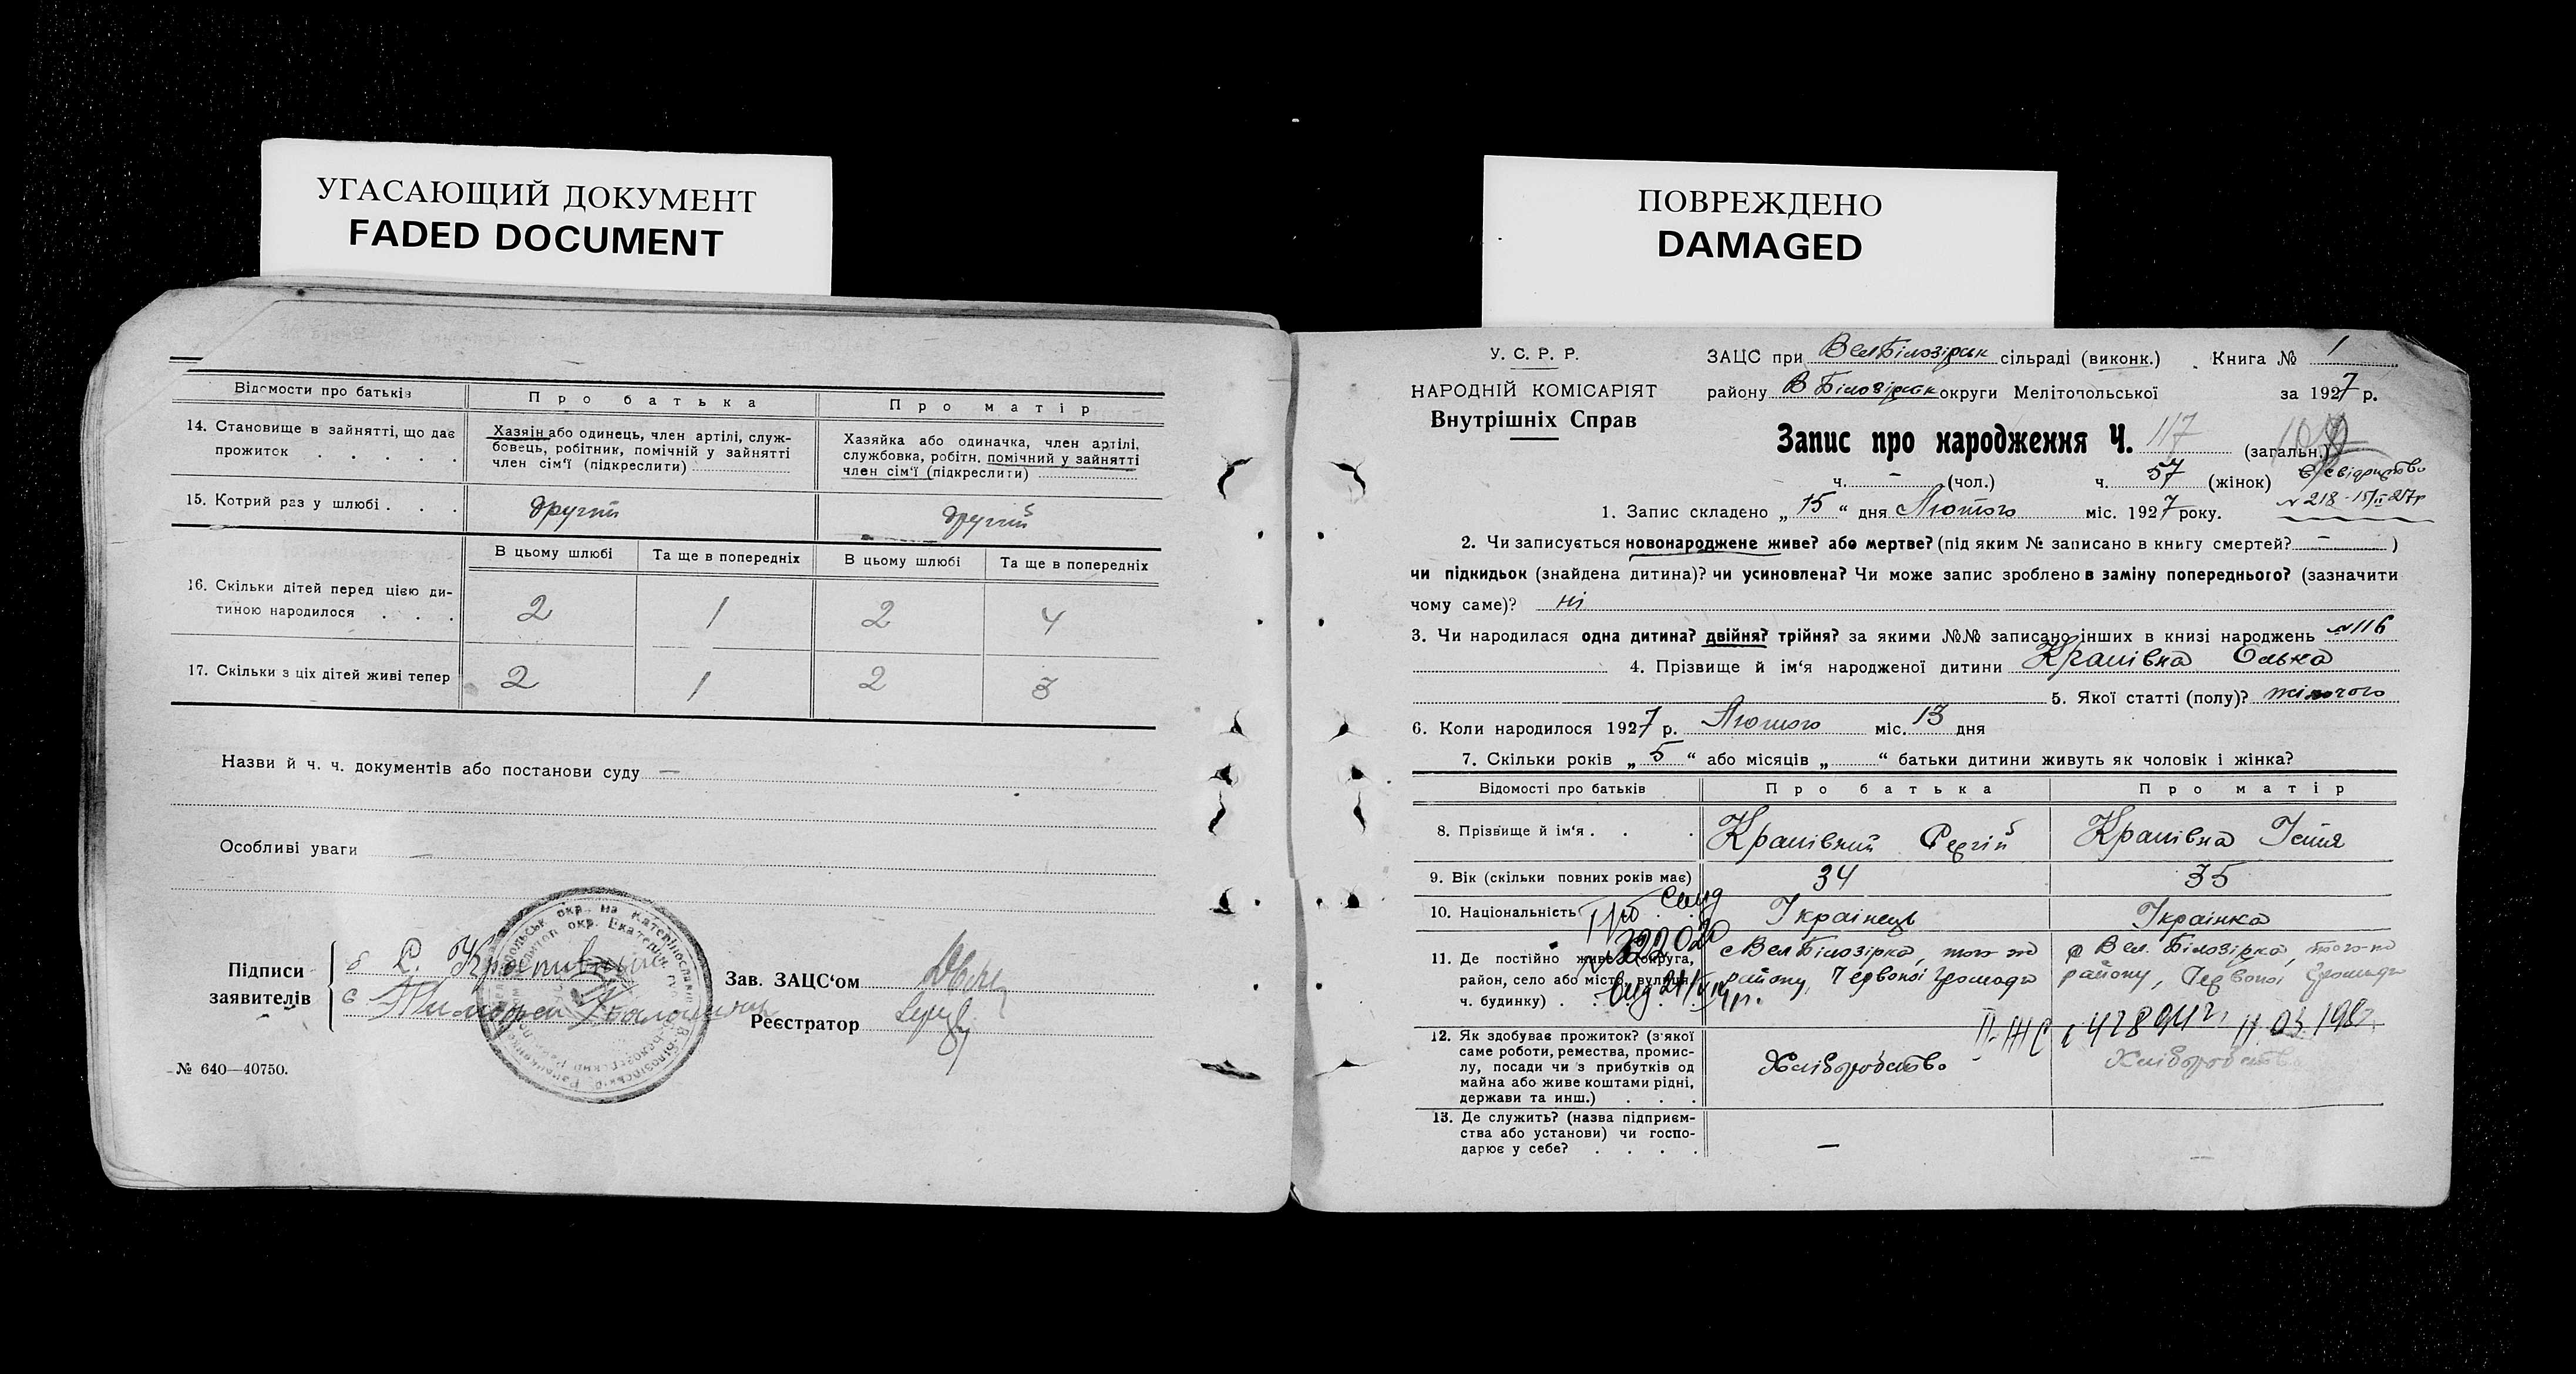 УГАСАЮЩИЙ ДОКУМЕНТ
FADED DOCUMENT
ПОВРЕЖДЕНО
DAMAGED
Відомости про батьків
Про батька
Про матір
14. Становище в зайнятті, що дає
прожиток . . . . .
Хазяїн або одинець, член артілі, служ-
бовець, робітник, помічній у зайнятті
член сім'ї (підкреслити)
Хазяйка або одиначка, член артілі,
службовка, робітн. помічний у зайнятті
член сім'ї (підкреслити)
15. Котрий раз у шлюбі . . .
другий
другий
В цьому шлюбі
Та ще в попередніх
В цьому шлюбі
Та ще в попередніх
16. Скільки дітей перед цією ди-
тиною народилося . . .
2 1 2 4
17. Скільки з ціх дітей живі тепер
2 1 2 3
Назви й ч. ч. документів або постанови суду —
Особливі уваги —
Підписи
заявителів
Зав. ЗАЦС'ом
Реєстратор
№ 640—40750.
У. С. Р. Р.
НАРОДНІЙ КОМІСАРІЯТ
Внутрішніх Справ
ЗАЦС при ВелБілозірськ сільраді (виконк.) Книга № 1
району В Білозірськ округи Мелітопольської за 1927 р.
Запис про народження Ч. 117 (загальн.)
ч. — (чол.) ч. 57 (жінок)
№ 218 - 15/II 27р
1. Запис складено „ 15 " дня Лютого міс. 1927 року.
2. Чи записується новонароджене живе? або мертве? (під яким № записано в книгу смертей? — )
чи підкидьок (знайдена дитина)? чи усиновлена? Чи може запис зроблено в заміну попереднього? (зазначити
чому саме)? ні
3. Чи народилася одна дитина? двійня? трійня? за якими №№ записано інших в книзі народжень №116
4. Прізвище й ім'я народженої дитини Крапівна Олька
5. Якої статті (полу)? жіночого
6. Коли народилося 1927 р. Лютого міс. 13 дня
7. Скільки років „ 5 " або місяців „ " батьки дитини живуть як чоловік і жінка?
Відомості про батьків
Про батька
Про матір
8. Прізвище й ім'я . . .
Крапівний Сергій
Крапівна
9. Вік (скільки повних років має)
34
35
10. Національність
Українець
Українка
11. Де постійно живе (округа,
район, село або місто, вулиця,
ч. будинку) . .
с ВелБілозірка, того ж
району, Червоної Громади
с Вел. Білозірка, того ж
району, Червоної Громади
12. Як здобуває прожиток? (з якої
саме роботи, ремества, промис-
лу, посади чи з прибутків од
майна або живе коштами рідні,
держави та инш.) . . .
Хліборобство
Хліборобство
13. Де служить? (назва підприєм-
ства або установи) чи госпо-
дарює у себе? . . . .
—
—